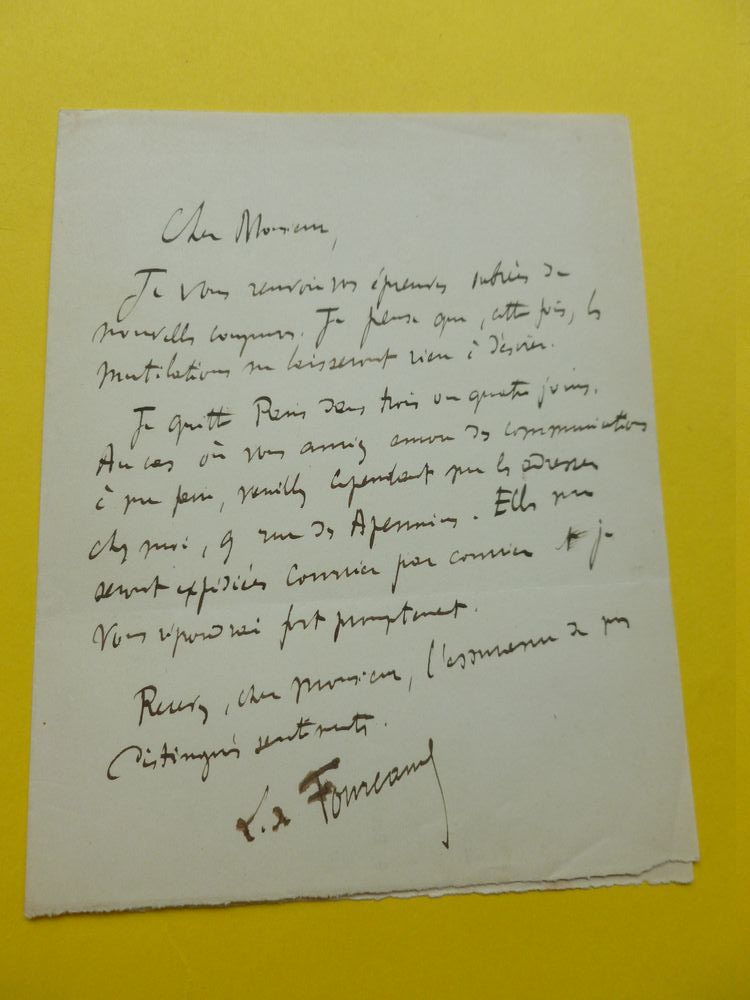 Cher Monsieur,
Je vous renvoie vos épreuves subies de
nouvelles coupures. Je pense que, cette fois, les
mutilations ne laisseront rien à désirer.
Je quitte Paris dans trois ou quatre jours.
Au cas où vous auriez encore des communications
à me faire, veuillez cependant me les adresser
chez moi, 9 rue des Apennins. Elles me
seront expédiées courrier par courrier et je
vous répondrai fort promptement.
Recevez, cher Monsieur, l'assurance de mes
distingués sentiments.
L. de Fourcaud